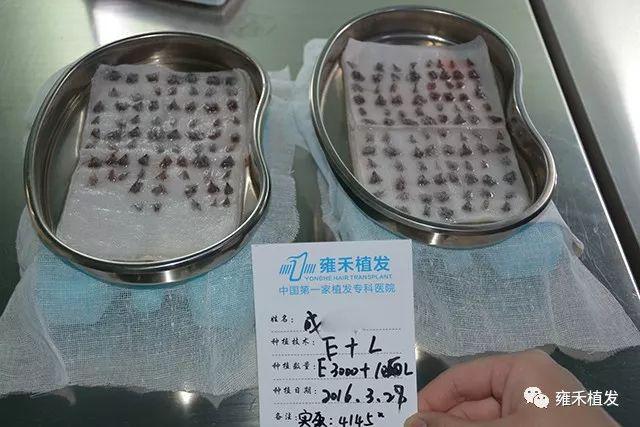 雍禾植发
YONGHE HAIR TRANSPLANT
中国第一家植发专科医院
姓名：成
种植技术：E+L
种植数量：E3000+1000L
种植日期：2016.3.27
备注：实发：4145
雍禾植发